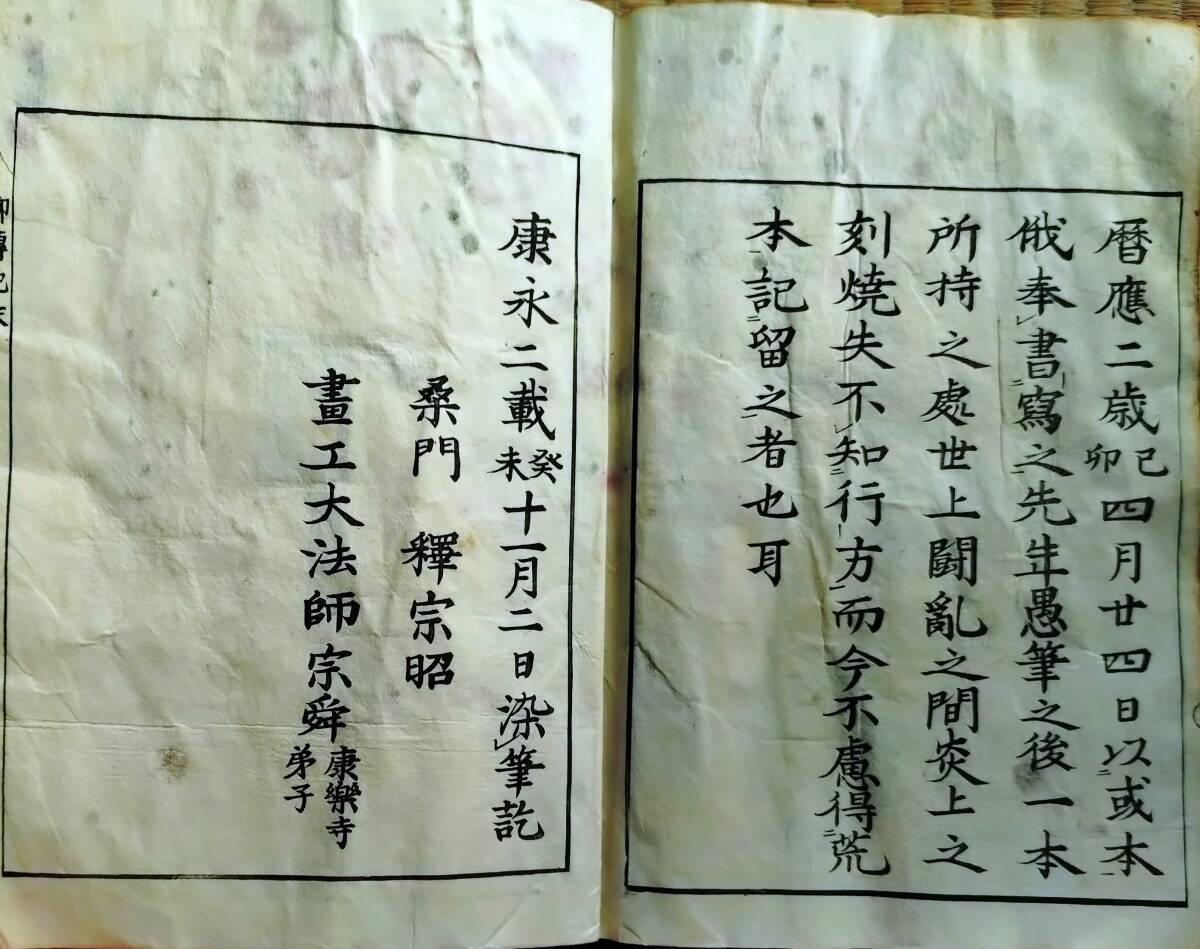 暦應二歳己卯四月廿四日以二或本一
俄奉レ書二寫之一先年愚筆之後一本
所持之處世上鬪亂之間炎上之
刻燒失不レ知二行方一而今不慮得二荒
本一記二留之一者也耳
康永二載癸未十一月二日染レ筆訖
桑門　釋宗昭
畫工大法師宗舜康樂寺弟子
御傳記末